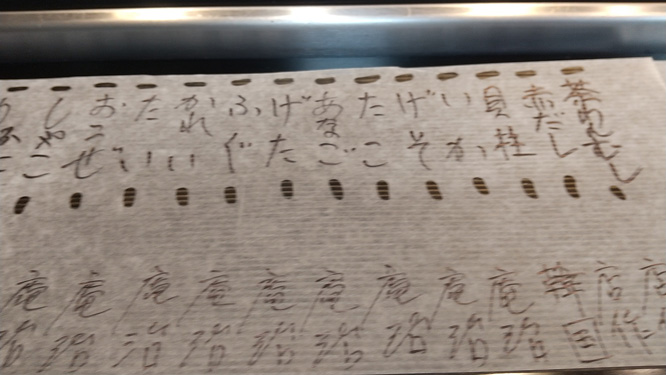 茶わんむし
赤だし
貝柱
いか
げそ
たこ
あなご
げた
ふぐ
かれい
たい
おこぜ
しゃこ
店作
韓国
庵治
庵治
庵治
庵治
庵治
庵治
庵治
庵治
庵治